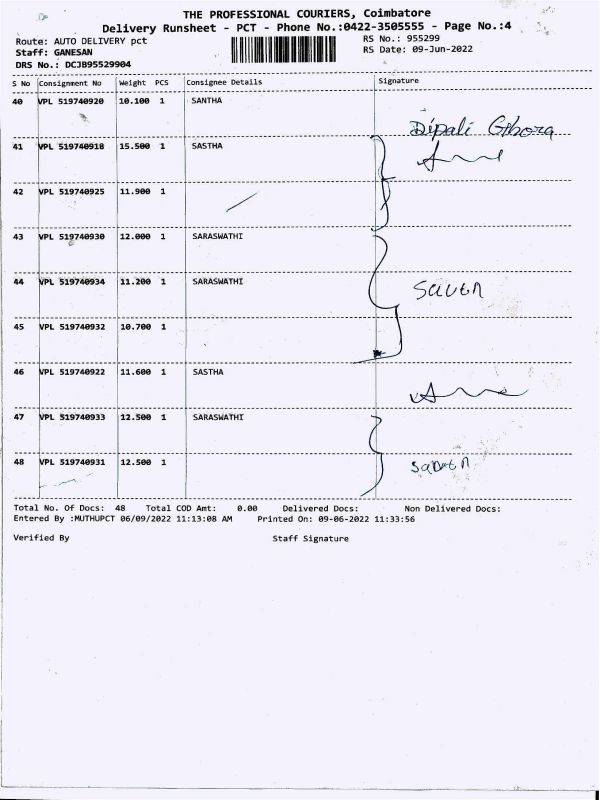 THE PROFESSIONAL COURIERS, Coimbatore
Delivery Runsheet - PCT - Phone No.:0422-3505555 - Page No.:4
Route: AUTO DELIVERY pct
RS No.: 955299
Staff: GANESAN
RS Date: 09-Jun-2022
DRS No.: DCJB95529904
S No Consignment No Weight PCS Consignee Details Signature
40 VPL 519740920 10.100 1 SANTHA
Dipali
41 VPL 519740918 15.500 1 SASTHA
42 VPL 519740925 11.900 1
43 VPL 519740930 12.000 1 SARASWATHI
44 VPL 519740934 11.200 1 SARASWATHI
45 VPL 519740932 10.700 1
46 VPL 519740922 11.600 1 SASTHA
47 VPL 519740933 12.500 1 SARASWATHI
48 VPL 519740931 12.500 1
Total No. Of Docs: 48 Total COD Amt: 0.00 Delivered Docs: Non Delivered Docs:
Entered By :MUTHUPCT 06/09/2022 11:13:08 AM Printed On: 09-06-2022 11:33:56
Verified By Staff Signature